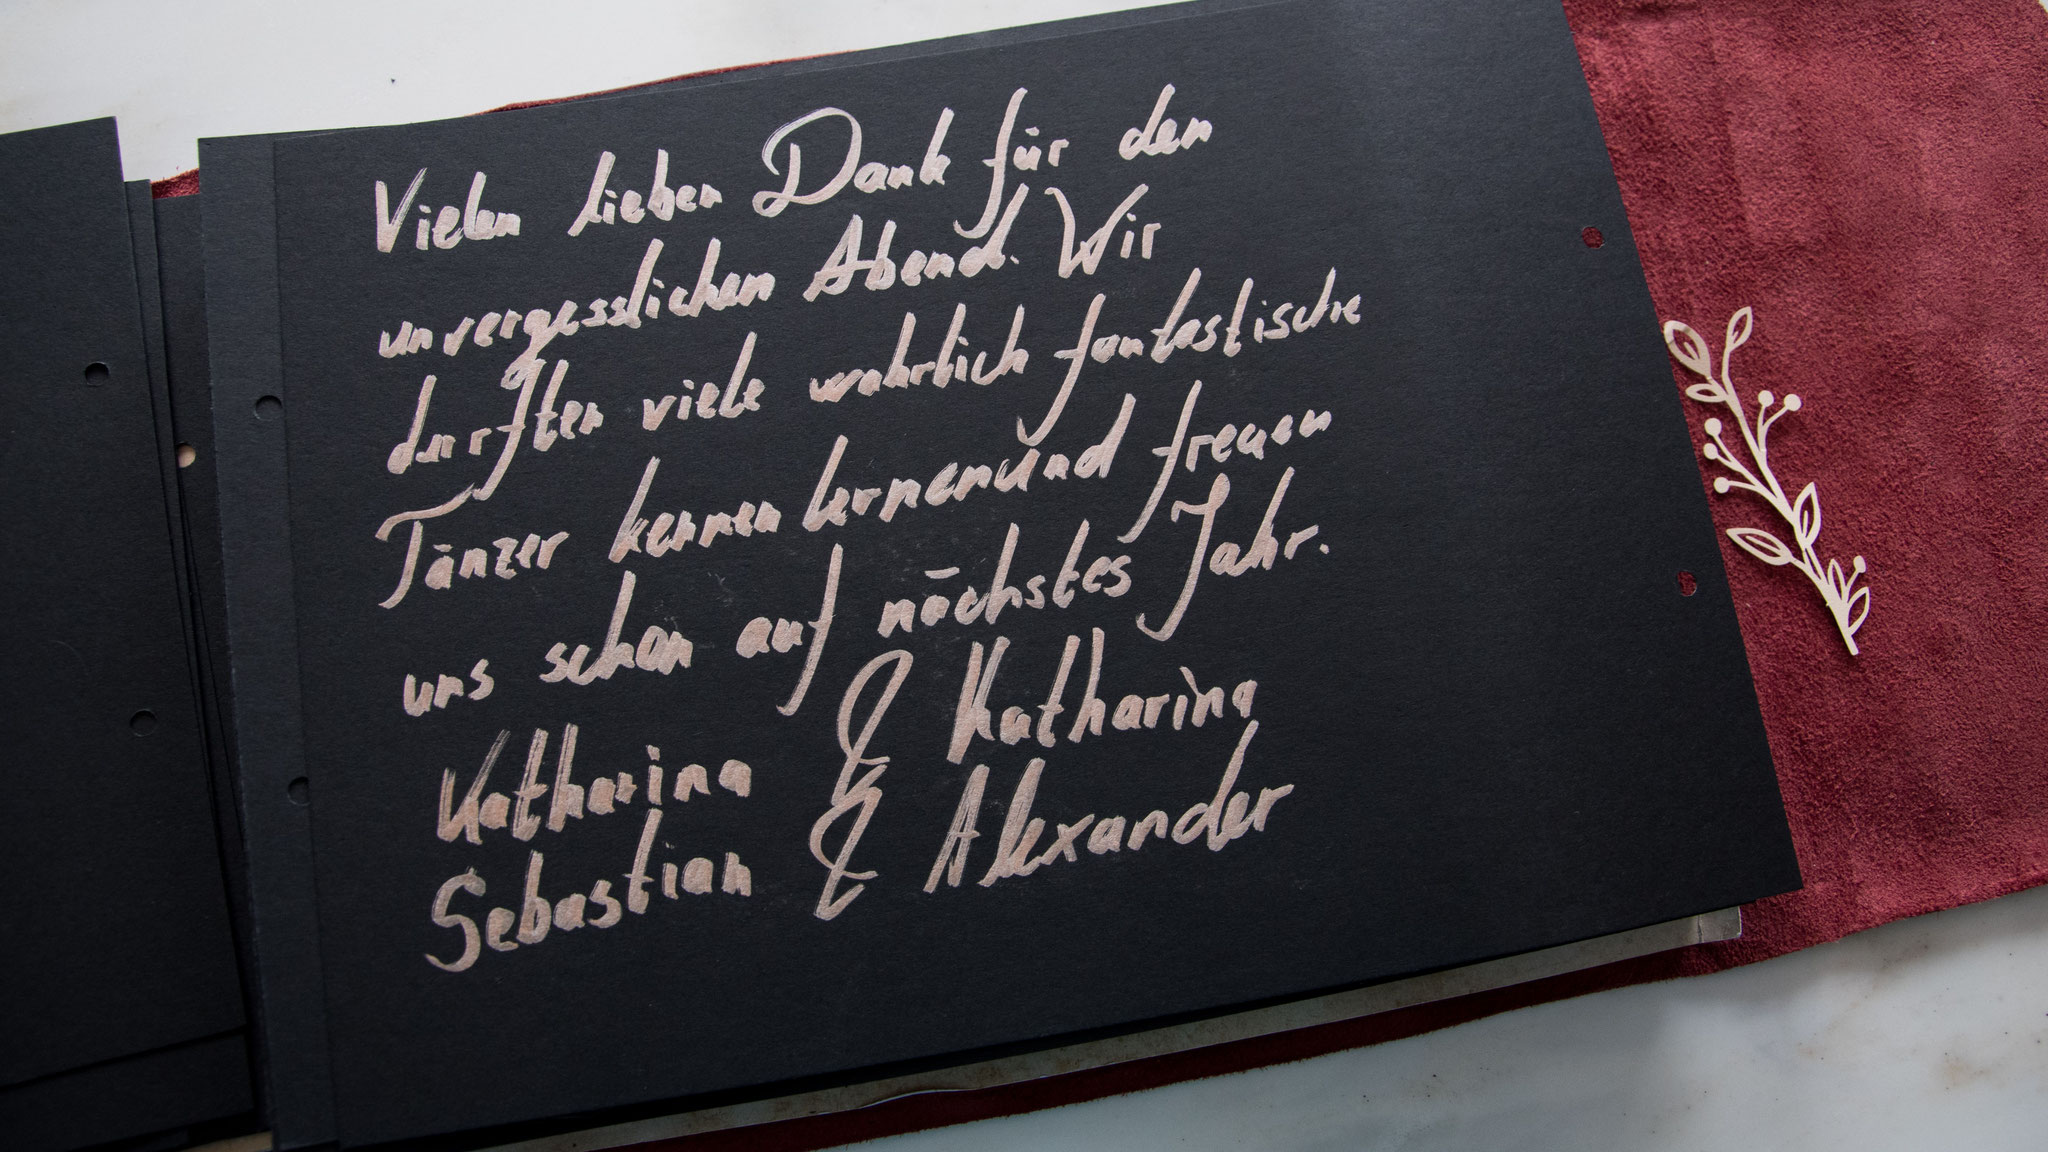 Vielen lieben Dank für den
unvergesslichen Abend. Wir
durften viele wahrlich fantastische
Tänzer kennen lernen und freuen
uns schon auf nächstes Jahr.
Katharina & Katharina
Sebastian & Alexander